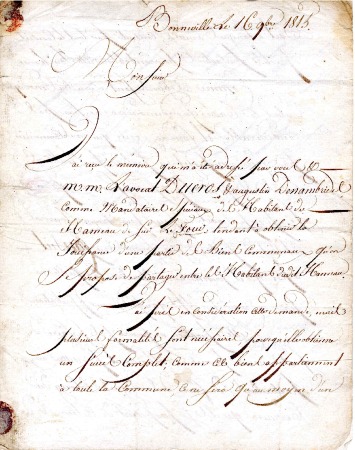 Bonneville le 16 9bre 1815.
Monsieur
J'ai reçu le mémoire qui m'a été adressé par vous et
M.M. L'avocat Ducros
Comme Mandataires spéciaux des Habitants du
Hameau de tendant à obtenir la
Jouissance d'une partie des Biens Communaux qu'on
Se propose de partager entre les Habitants dudit Hameau.
J'ai pris en considération cette demande, mais
plusieurs formalités sont nécessaires, pour qu'elle obtienne
un succès Complet, comme ces biens appartiennent
à toute la Commune Ce ne sera qu'au moyen d'un